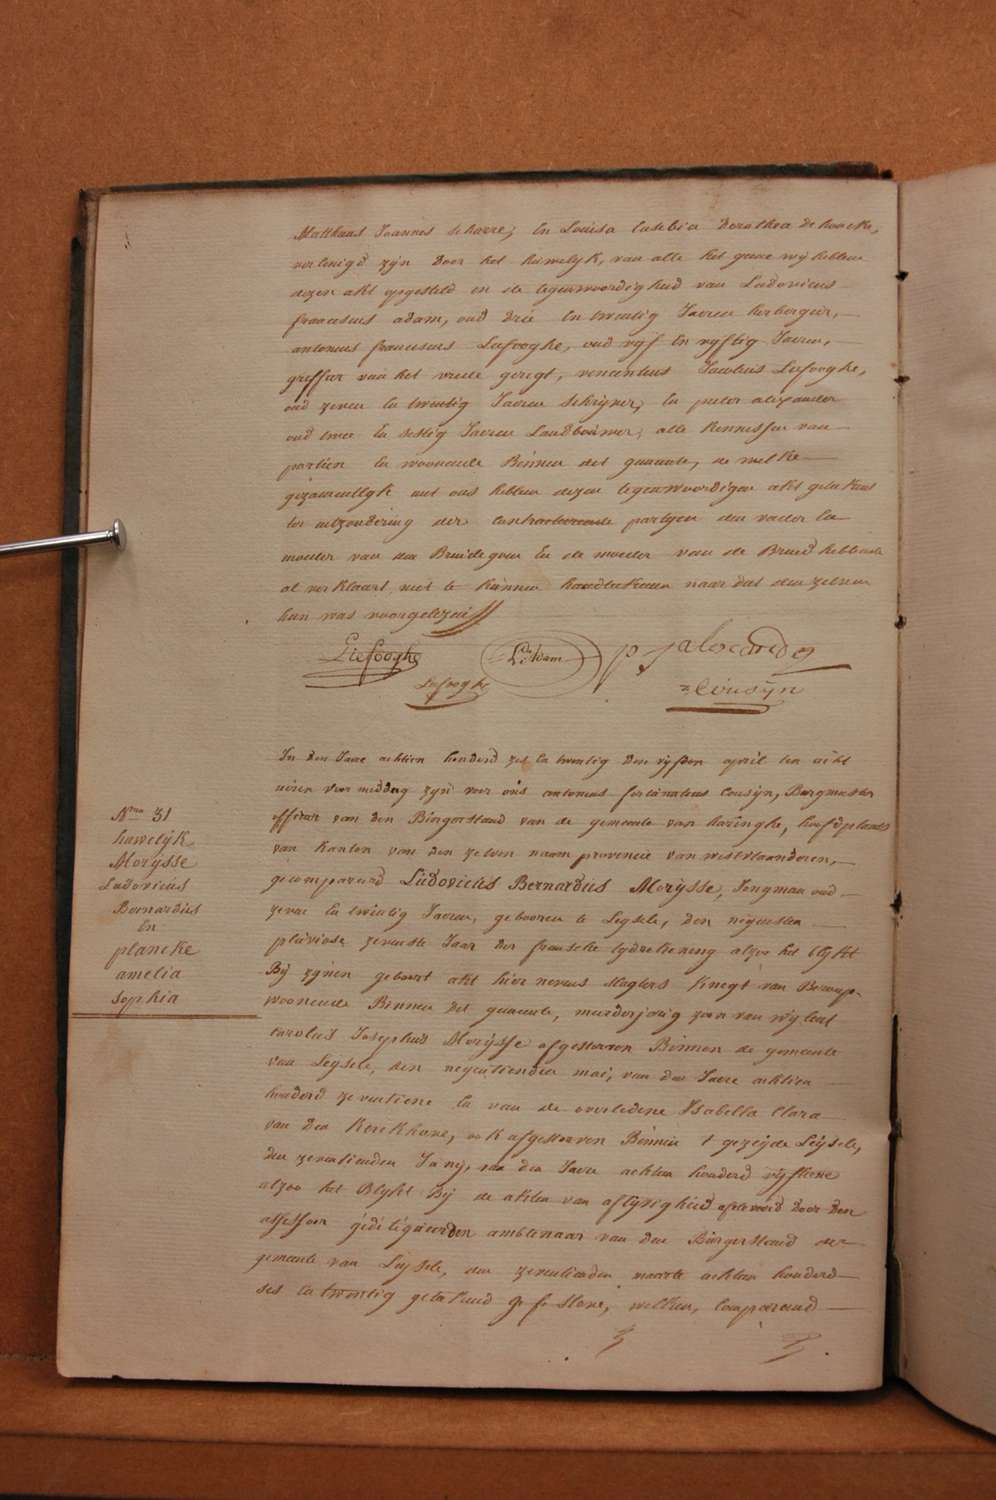 Matthaus Joannes scharre, En Louisa Eusebia Dorothea de honcke,
vereenigd zijn door het huwelyk, van alle het geene wij hebben
dezen akt opgesteld in de tegenwoordigheid van Ludovicus
franciscus adam, oud drie En twintig Jaeren herbergier,
antonius franciscus Liefooghe, oud vijf En vyftig Jaeren,
greffier van het vrede geregt, vincentius Jacobus Liefooghe,
oud zeven En twintig Jaeren schrijner, En pieter alexander
oud twee En sestig Jaeren Landbouwer, alle kennissen van
partien En woonende Binnen det gemeente, de welke
gezaementlyk met ons hebben dezen tegenwoordigen akt geteekent
ter uitzondering der Contracteerende partyen den vader En
moeder van den Bruidegom En de moeder van de Bruid hebbende
al verklaart niet te kunnen handteekenen naer dat den zelven
hun was voorgelezen
Liefooghe L: Adam p J alexander
Liefooghe Cousijn
In den Jaere achtien honderd zes En twintig den vyfden april ten acht
uiren voor middag zyn voor ons antonius fortunatus Cousijn, Burgmaster
officier van den Burgerstand van de gemeente van haringhe, hoofdplaats
van kanton van den zelven naam provincie van westvlaanderen,
gecompareerd Ludovicus Bernardus Morysse, Jongman oud
zeven En twintig Jaeren, gebooren te Leysele, den negensten
pluviose zevenste Jaar der fransche tydrekening alzoo het blykt
Bij zynen geboort akt hier nevens slagters knegt van Beroep
woonende Binnen det gemeente, meerderjarig zoon van wylent
Carolus Josephus Morysse afgestorven Binnen de gemeente
van Leysele, den negentienden mai, van den Jaere achtien
honderd zeventiene En van de overledene Isabella Clara
van den Kerckhove, ook afgestorven Binnen t gezeyde Leysele,
den zeventienden Junij, van den Jaere achtien honderd vyftiene
alzoo het Blykt Bij de akten van aflyvigheid afgelevert door den
assessor gedeligueerden ambtenaar van den Burgerstand der
gemeente van Leysele, den zeventienden maerte achtien honderd
ses En twintig geteekend welken, Comparand
Nro 31
huwelijk
Morysse
Ludovicus
Bernardus
En
plancke
amelia
sophia